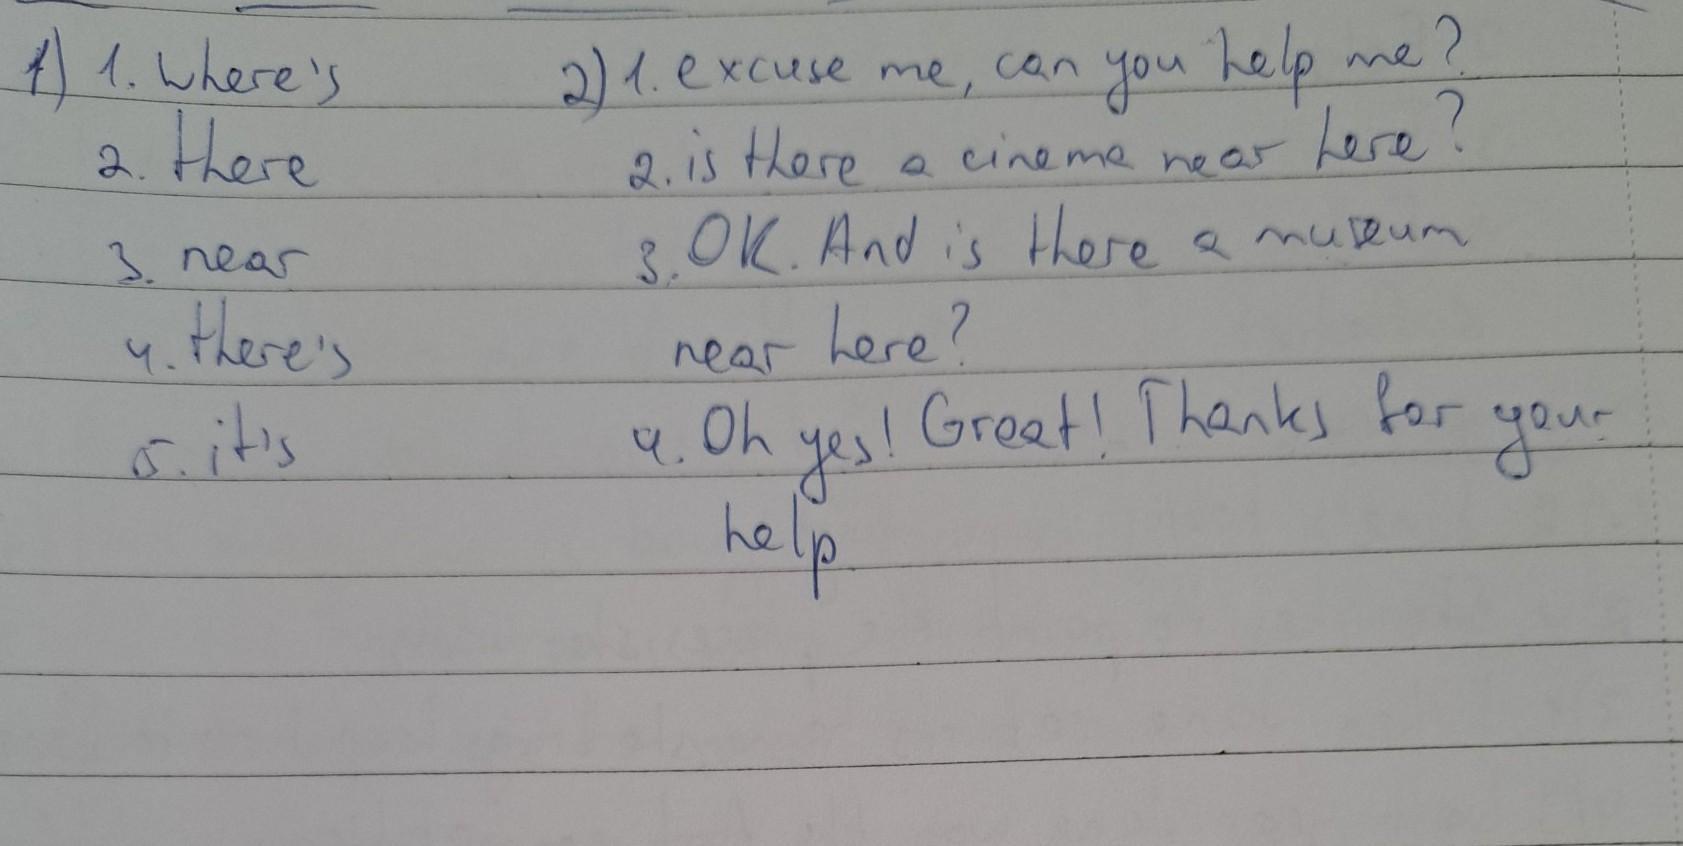 1) 1. where's
2. there
3. near
4. there's
5. it's
2) 1. excuse me, can you help me?
2. is there a cinema near here?
3. OK. And is there a museum
near here?
4. Oh yes! Great! Thanks for your
help